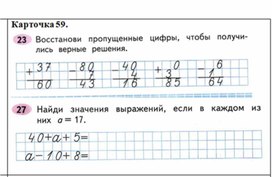 Карточка 59.
23 Восстанови пропущенные цифры, чтобы получи-
лись верные решения.
+ 37 - 80 - 40 + 0 - 6
7 4 3 1
60 43 16 85 64
27 Найди значения выражений, если в каждом из
них a = 17.
40+a+5=
a-10+8=